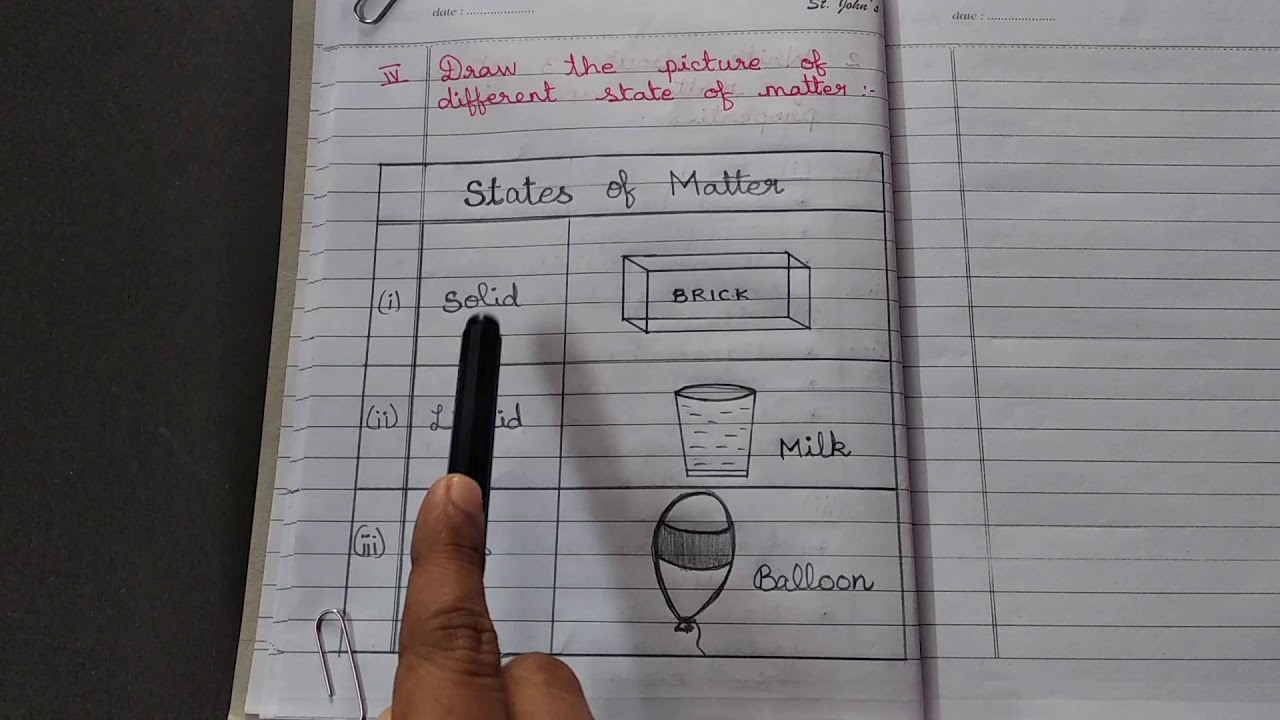 date : ....................
St. John's
date : ....................
IV Draw the picture of
different state of matter :-
States of Matter
(i) Solid BRICK
(ii)
Milk
(iii)
Balloon